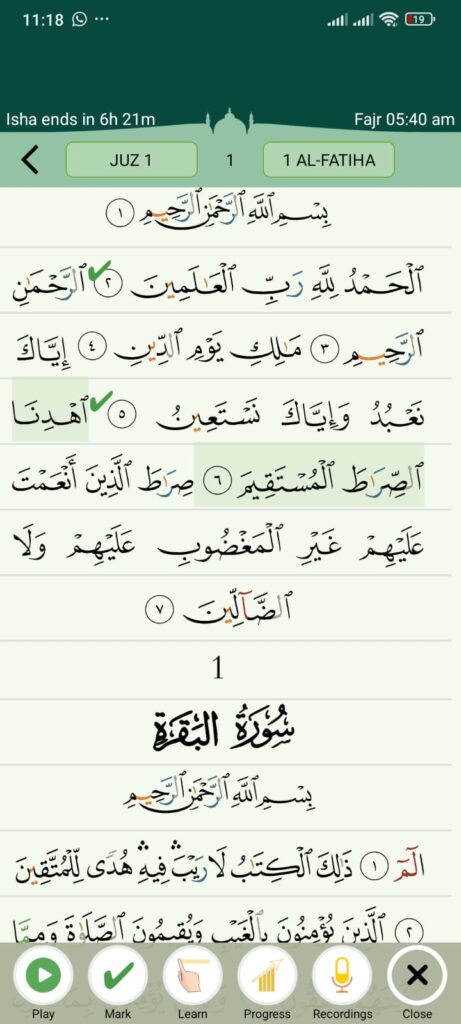 11:18 ... 19
Isha ends in 6h 21m Fajr 05:40 am
JUZ 1 1 1 AL-FATIHA
بِسْمِ ٱللَّهِ ٱلرَّحْمَٰنِ ٱلرَّحِيمِ ١
ٱلْحَمْدُ لِلَّهِ رَبِّ ٱلْعَٰلَمِينَ ٢ ٱلرَّحْمَٰنِ
ٱلرَّحِيمِ ٣ مَٰلِكِ يَوْمِ ٱلدِّينِ ٤ إِيَّاكَ
نَعْبُدُ وَإِيَّاكَ نَسْتَعِينُ ٥ ٱهْدِنَا
ٱلصِّرَٰطَ ٱلْمُسْتَقِيمَ ٦ صِرَٰطَ ٱلَّذِينَ أَنْعَمْتَ
عَلَيْهِمْ غَيْرِ ٱلْمَغْضُوبِ عَلَيْهِمْ وَلَا
ٱلضَّآلِّينَ ٧
1
سُورَةُ البَقَرَةِ
بِسْمِ ٱللَّهِ ٱلرَّحْمَٰنِ ٱلرَّحِيمِ
الٓمٓ ١ ذَٰلِكَ ٱلْكِتَٰبُ لَا رَيْبَ ۛ فِيهِ ۛ هُدًى لِّلْمُتَّقِينَ
٢ ٱلَّذِينَ يُؤْمِنُونَ بِٱلْغَيْبِ وَيُقِيمُونَ ٱلصَّلَوٰةَ وَمِمَّا
Play Mark Learn Progress Recordings Close